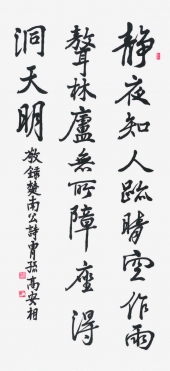 静夜知人跡時空作雨
聲林廬無所障座得
洞天明
敬錄楚南公詩冑孫高安相